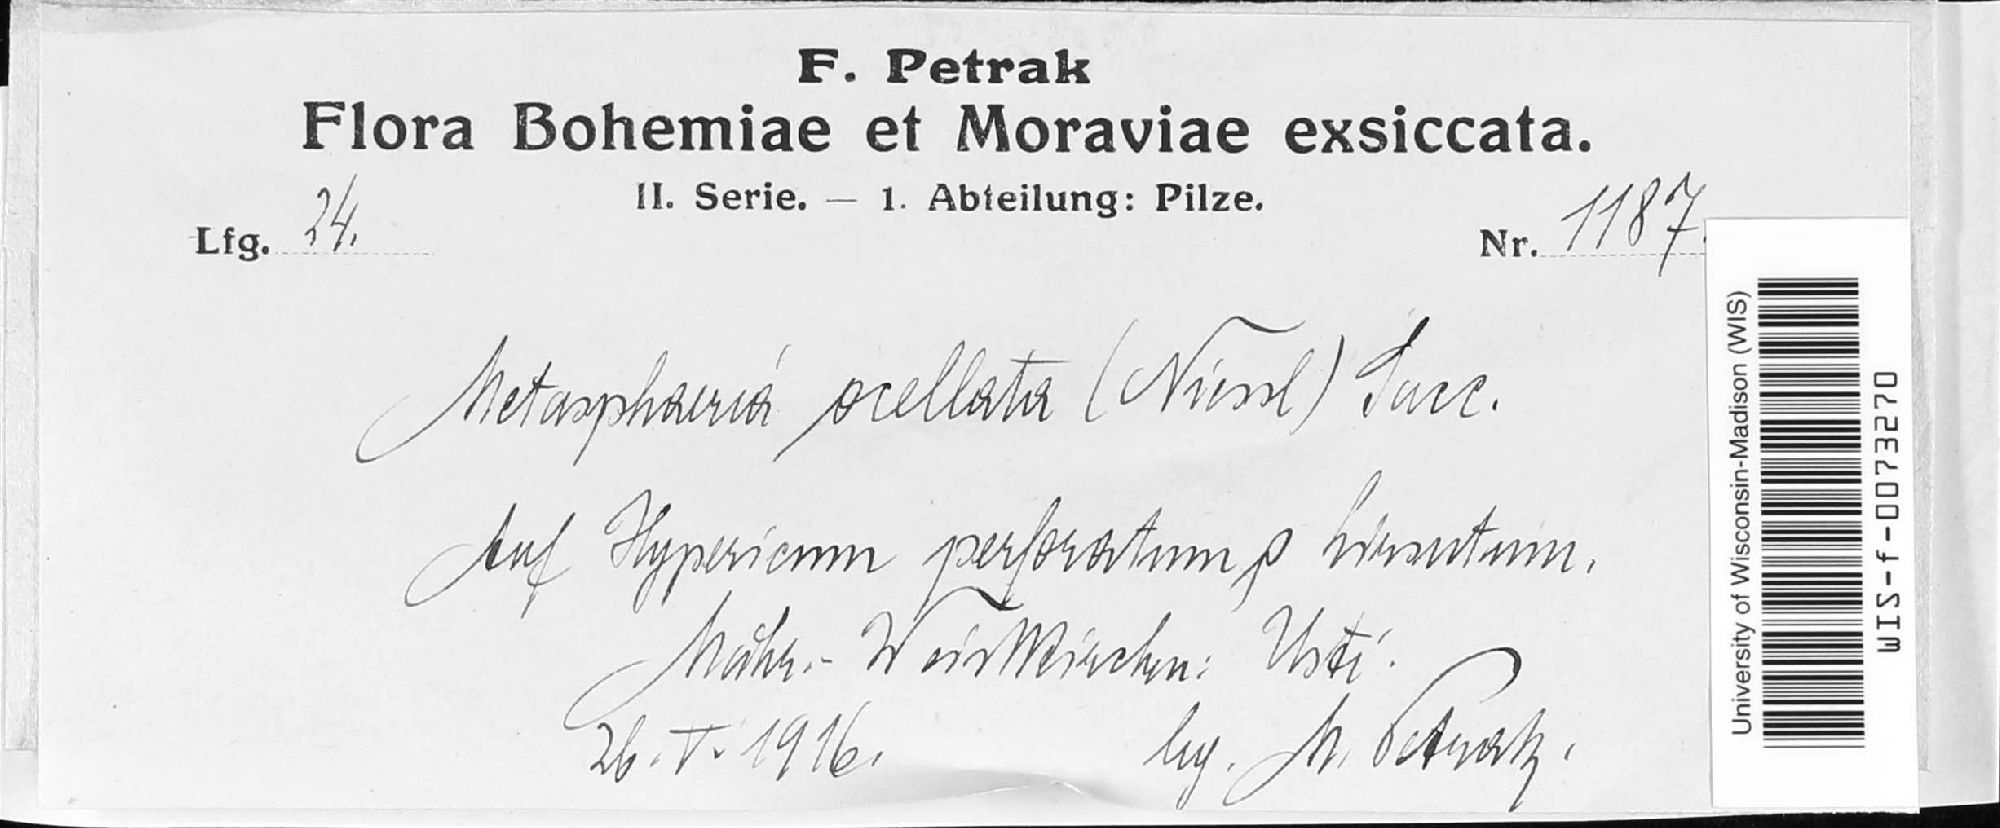 F. Petrak
Flora Bohemiae et Moraviae exsiccata.
II. Serie. — 1. Abteilung: Pilze.
Lfg. 24.
Nr. 1187.
Metasphaeria ocellata (Niessl) Sacc.
Auf Hypericum perforatum β hirsutum.
Mähr.-Weisskirchen: Usti.
26. V. 1916.
leg. F. Petrak.
University of Wisconsin-Madison (WIS)
WIS-f-0073270